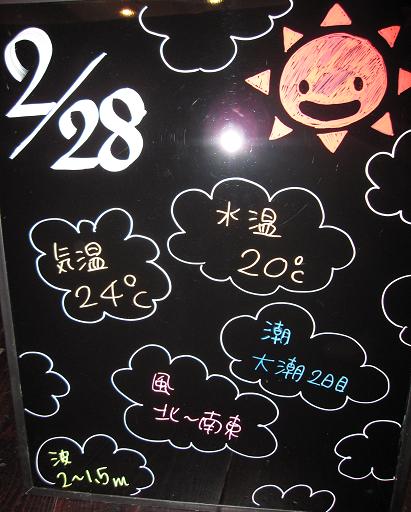 2/28
水温
20℃
気温
24℃
潮
大潮2日目
風
北〜南東
波
2〜1.5m